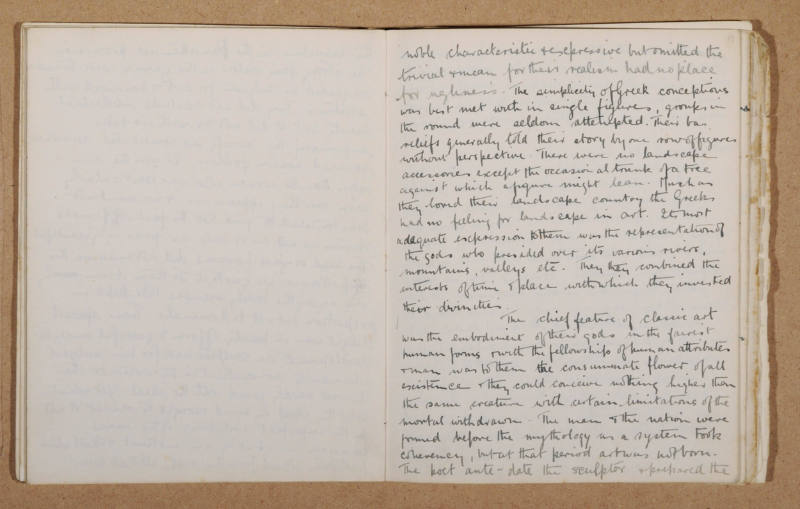 noble characteristic & expressive but omitted the
trivial & mean for their realism had no place
for ugliness. The simplicity of Greek conceptions
was best met with in single figures, groups in
the round were seldom attempted. Their bas
reliefs generally told their story by one row of figures
without perspective. There were no landscape
accessories except the occasional trunk of a tree
against which a figure might lean. Much as
they loved their landscape country the Greeks
had no feeling for landscape in art. Its most
adequate expression to them was the representation of
the gods who presided over its various rivers,
mountains, valleys etc. They combined the
interests of time & place with which they invested
their divinities.
The chief feature of classic art
was the embodiment of their gods in the fairest
human forms & with the fellowship of human attributes
& man was to them the consummate flower of all
existence & they could conceive nothing higher than
the same creature with certain limitations of the
mortal withdrawn. The man & the nation were
formed before the mythology as a system took
coherency, but at that period art was not born.
The poet ante-date the sculptor & prepared the